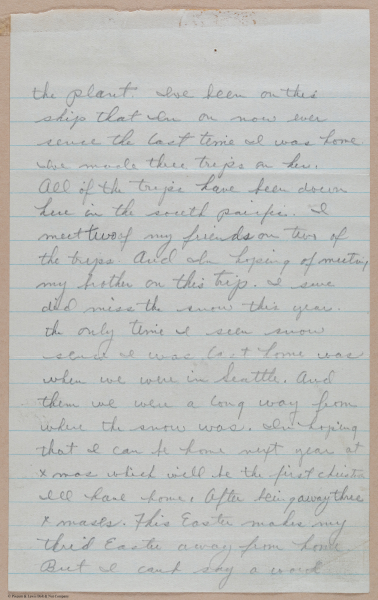 the plant. I've been on this
ship that I'm on now ever
sence the last time I was home
I've made three trips on her.
All of the trips have been down
here in the south pacific. I
meet two of my friends on two of
the trips. And I'm hoping of meeting
my brother on this trip. I sure
did miss the snow this year.
the only time I seen snow
sence I was last home was
when we were in Seattle. And
then we were a long way from
where the snow was. I'm hoping
that I can be home next year at
xmas which will be the first christmas
I'll have home. After being away three
xmases. This Easter makes my
third Easter away from home
But I can't say a word